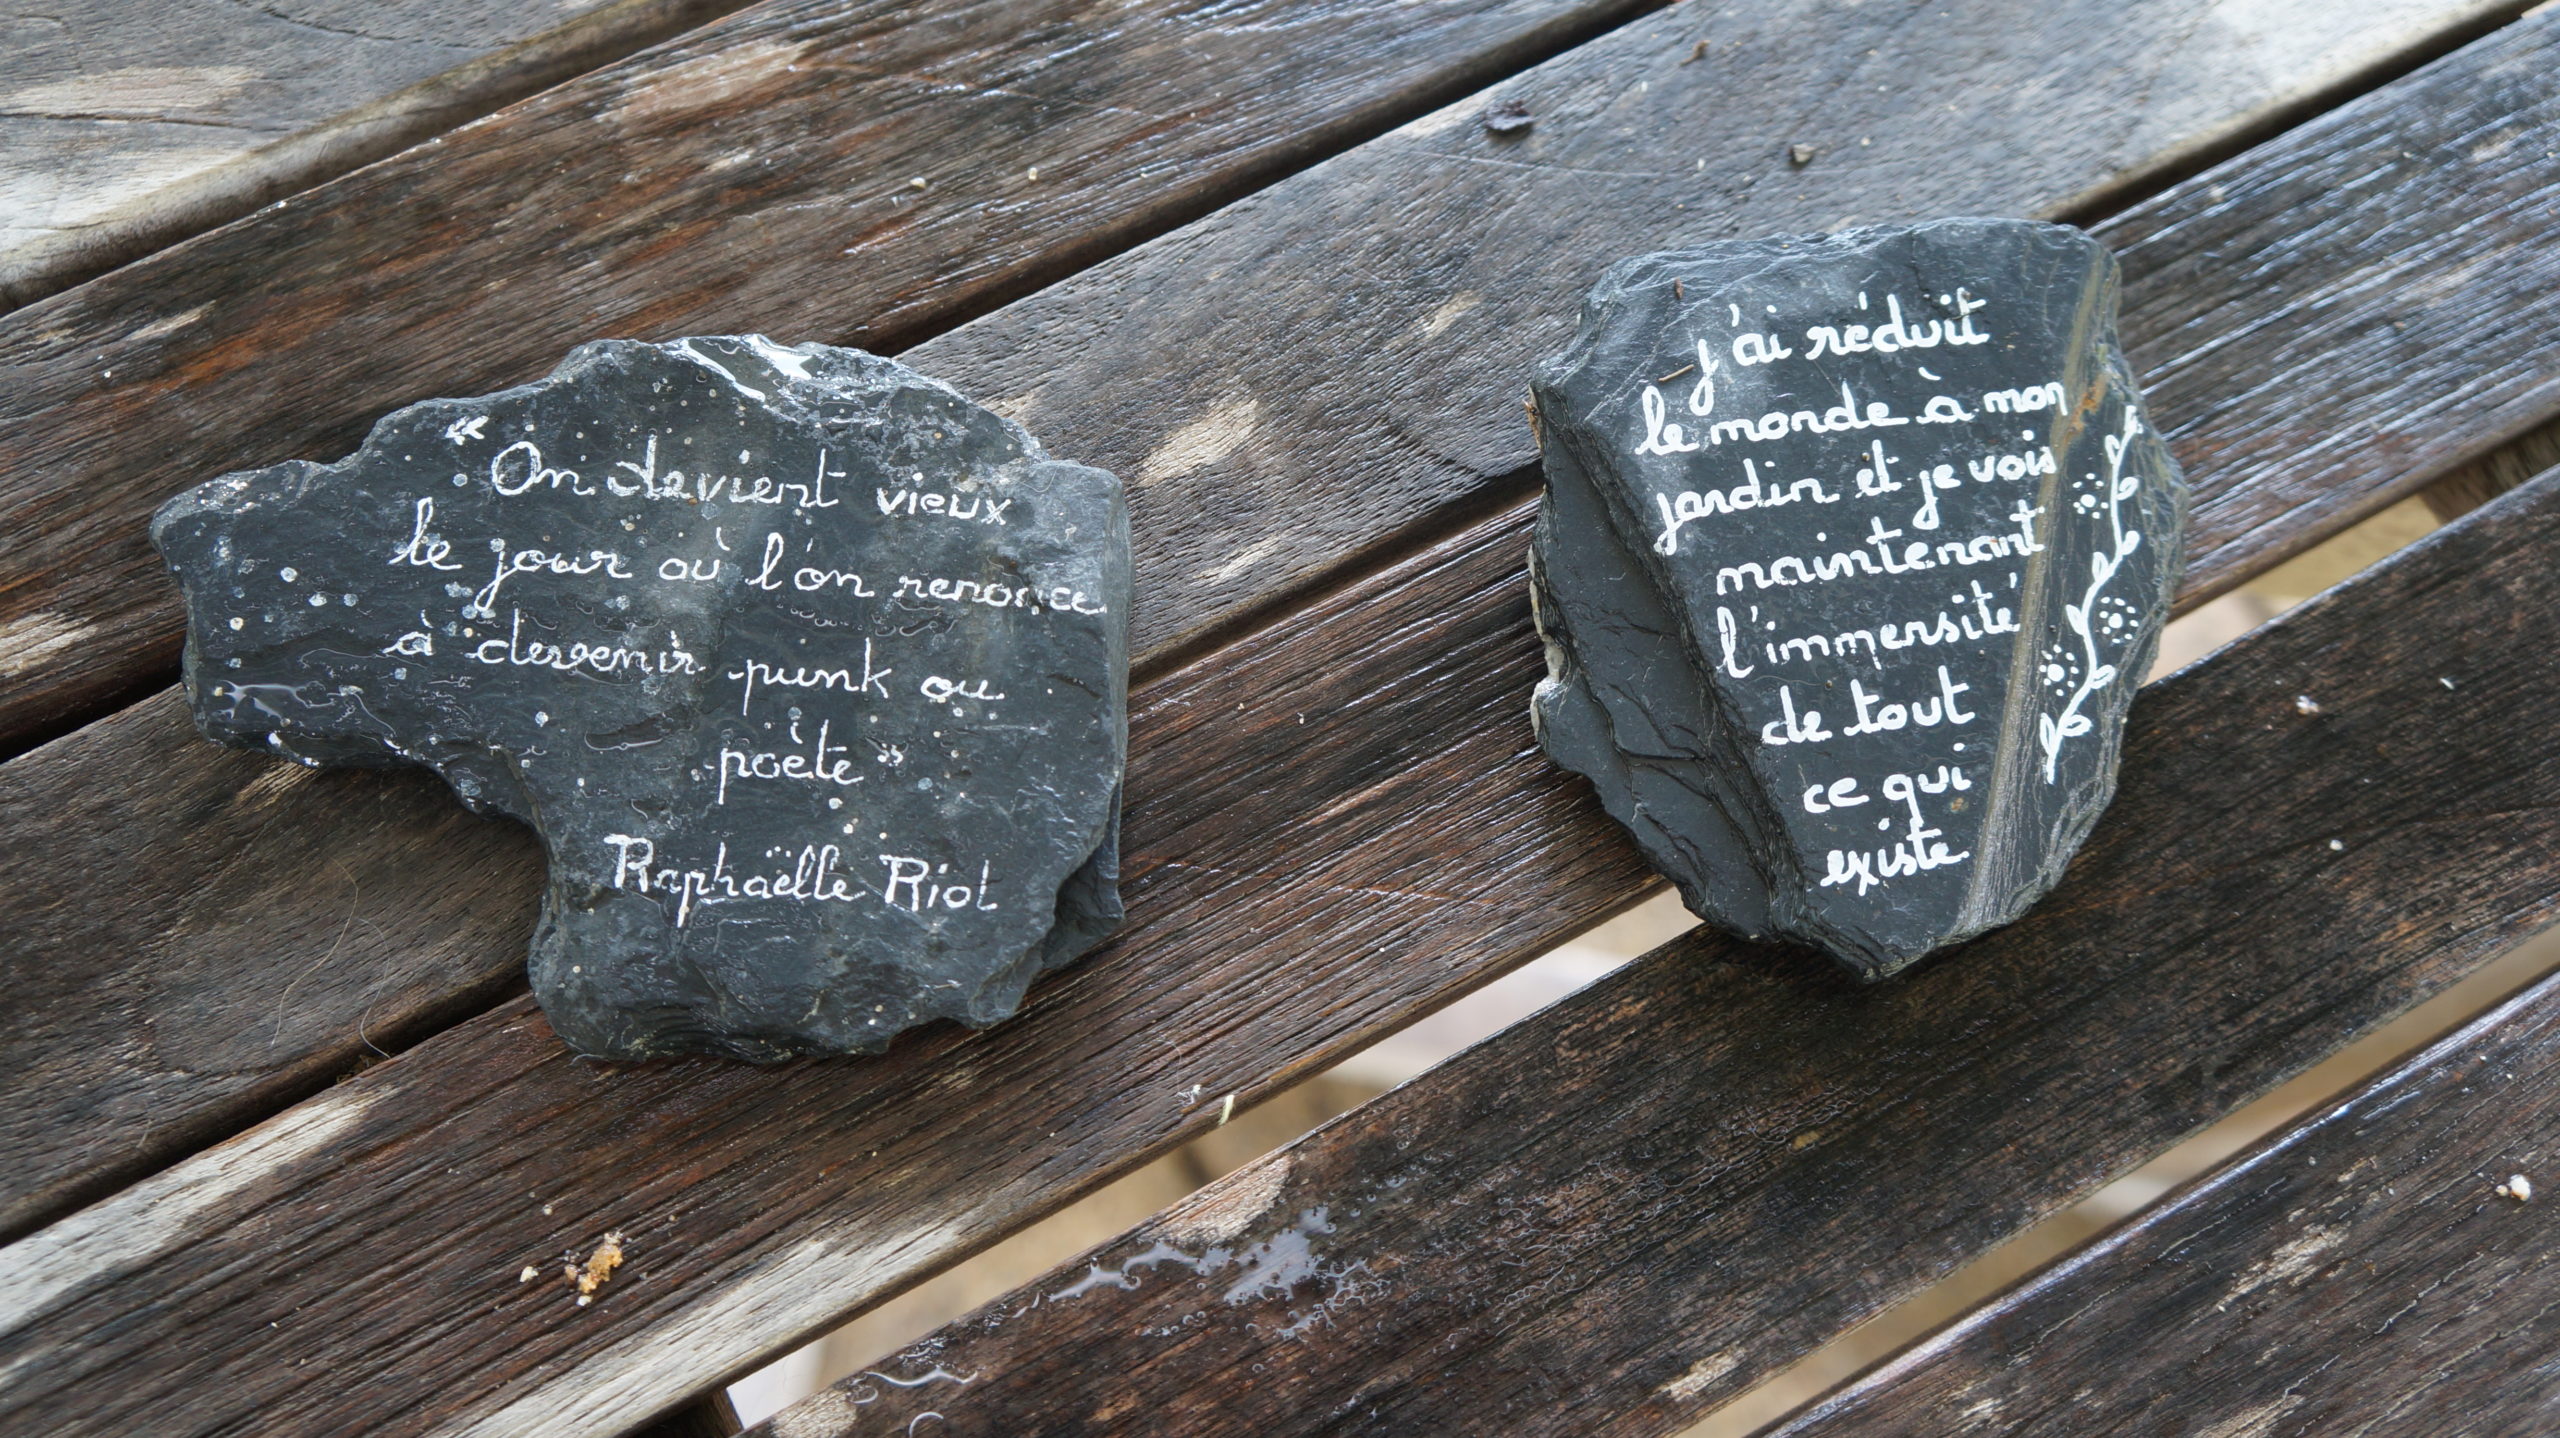 « On devient vieux
le jour où l'on renonce
à devenir punk ou
poète »
Raphaëlle Riol
j'ai réduit
le monde à mon
jardin et je vois
maintenant
l'immensité
de tout
ce qui
existe